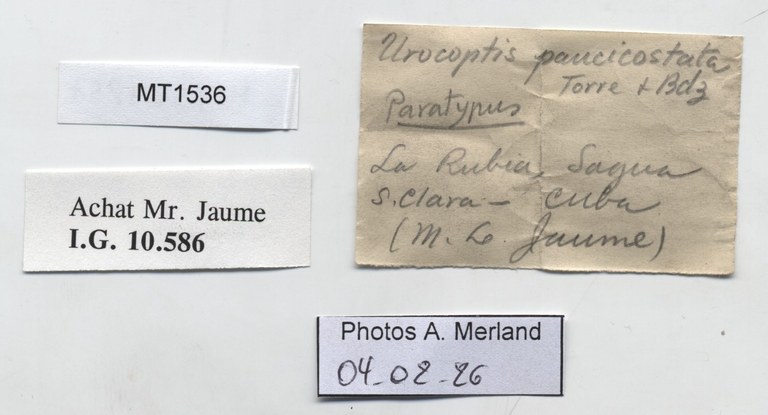 MT1536
Achat Mr. Jaume
I.G. 10.586
Urocoptis paucicostata
Torre + Bdz
Paratypus
La Rubia, Sagua
S. Clara - Cuba
(M. L. Jaume)
Photos A. Merland
04-02-26